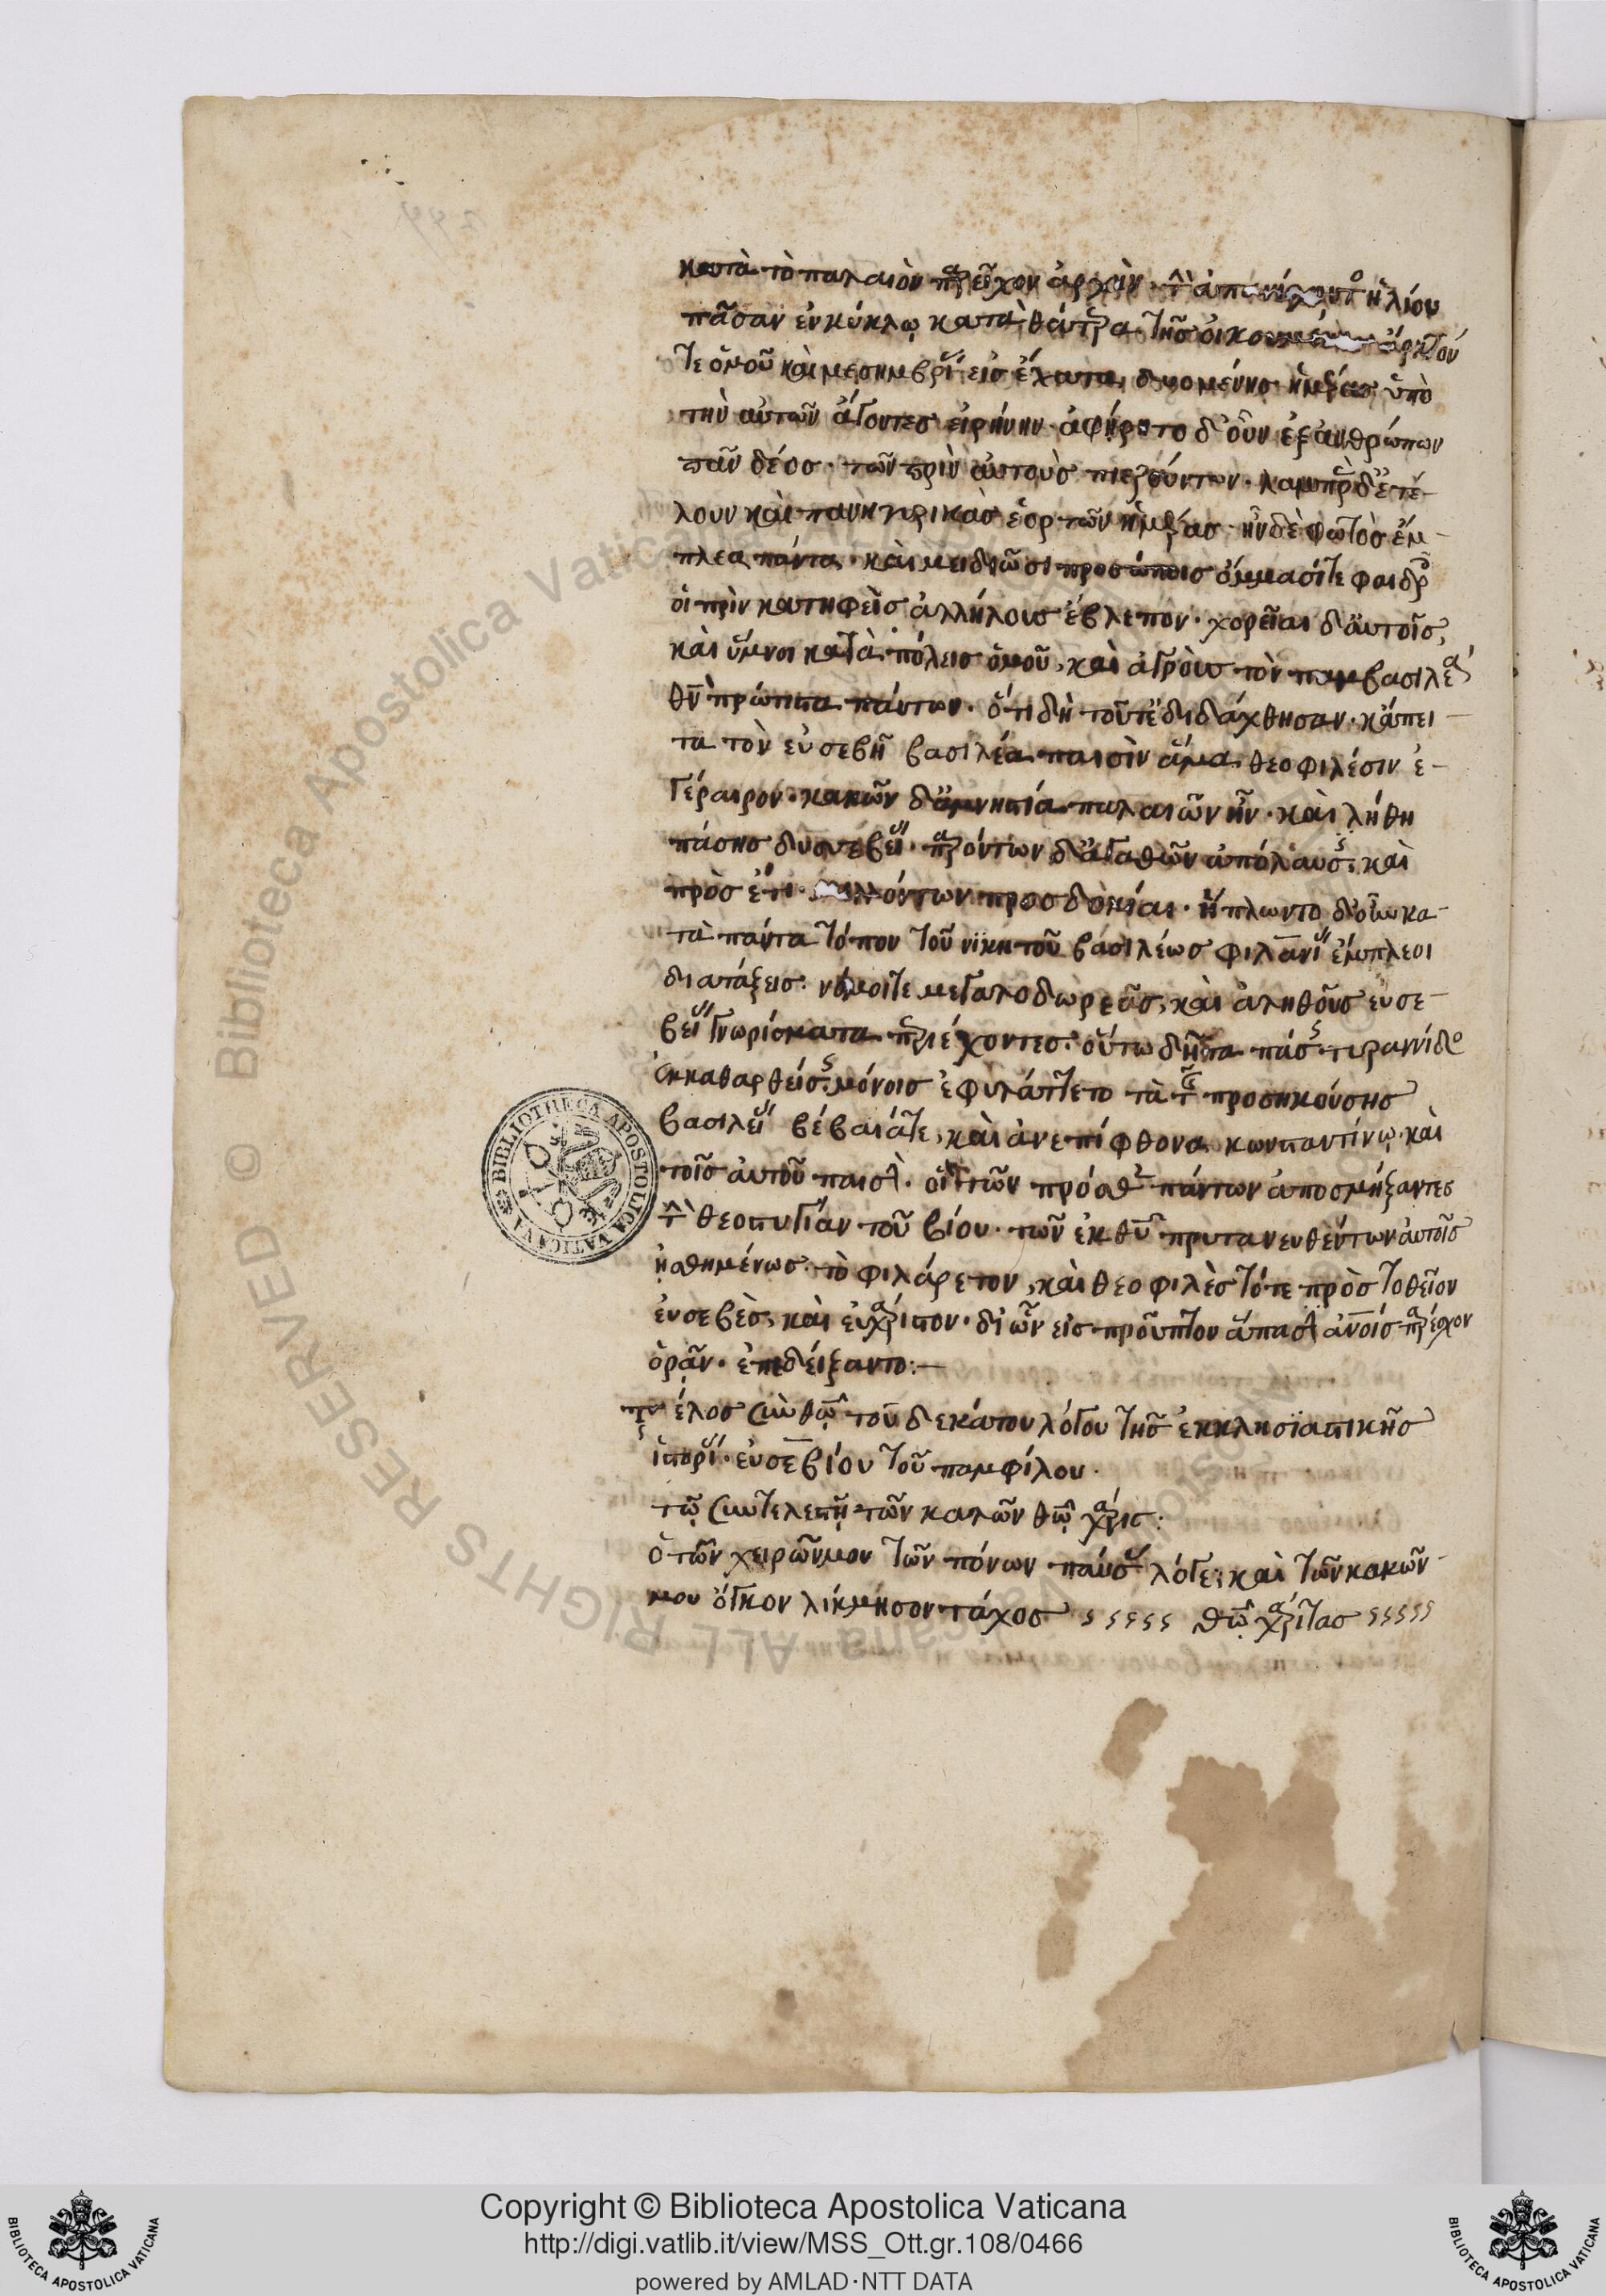 κατὰ τὸ παλαιὸν παρεῖχον ἀρχὴν· τὴν ἀπ ἡλίου
πᾶσαν ἐν κύκλῳ κατὰ θάτερα τῆς οἰκουμένης ἄρκτον
τε ὁμοῦ καὶ μεσημβρίαν εἰς ἔσχατα δυομένης ἡμέρας ὑπὸ
τὴν αὐτῶν ἄγοντες εἰρήνην· ἀφήρητο δ' οὖν ἐξ ἀνθρώπων
πᾶν δέος· τῶν πρὶν αὐτοὺς πιεζούντων· λαμπρὰς δ' ἐτέ-
λουν καὶ πανηγυρικὰς ἑορτῶν ἡμέρας· ἦν δὲ φωτὸς ἔμ-
πλεα πάντα· καὶ μειδιῶσι προσώποις ὄμμασί τε φαιδροῖς
οἱ πρὶν κατηφεῖς ἀλλήλους ἔβλεπον· χορεῖαι δ' αὐτοῖς,
καὶ ὕμνοι κατὰ πόλεις ὁμοῦ, καὶ ἀγροὺς τὸν παμβασιλέα
θν πρώτιστα πάντων· ὅτι δὴ τοῦτ' ἐδιδάχθησαν· κἄπει-
τα τὸν εὐσεβῆ βασιλέα παισὶν ἅμα θεοφιλέσιν ἐ-
γέραιρον· κακῶν δ' ἀμνηστία παλαιῶν ἦν· καὶ λήθη
πάσης δυσσεβείας· παρόντων δ' ἀγαθῶν ἀπόλαυσις καὶ
πρὸς ἔτι μελλόντων προσδοκίαι· ἥπλωντο δ' οὖν κα-
τὰ πάντα τόπον τοῦ νικητοῦ βασιλέως φιλανίας ἔμπλεοι
διατάξεις· νόμοι τε μεγαλοδωρεᾶς, καὶ ἀληθοῦς εὐσε-
βείας γνωρίσματα περιέχοντες· οὕτω δῆτα πάσης τυραννίδος
ἐκκαθαρθείσης μόνοις ἐφυλάττετο τὰ τῆς προσηκούσης
βασιλείας βέβαιά τε, καὶ ἀνεπίφθονα κωνσταντίνῳ· καὶ
τοῖς αὐτοῦ παισὶ· οἳ τῶν πρόσθεν πάντων ἀποσμήξαντες
τὴν θεοστυγίαν τοῦ βίου· τῶν ἐκ θυ πρυτανευθέντων αὐτοῖς
ᾐσθημένως τὸ φιλάρετον, καὶ θεοφιλὲς τό τε πρὸς τὸ θεῖον
εὐσεβὲς, καὶ εὐχάριστον· δι' ὧν εἰς προῦπτον ἅπασιν ἀνοις παρέσχον
ὁρᾶν· ἐπεδείξαντο:—
τέλος σὺν θῶ τοῦ δεκάτου λόγου τῆς ἐκκλησϊαστικῆς
ἱστορίας· εὐσεβίου τοῦ παμφίλου·
τῷ συντελεστῇ τῶν καλῶν θῶ χάρις:
ὁ τῶν χειρῶν μου τῶν πόνων παύσας λόγε· καὶ τῶν κακῶν
μου ὄγκον λίκμησον τάχος θῶ χάριτας
BIBLIOTHECA APOSTOLICA VATICANA
© Biblioteca Apostolica Vaticana ALL RIGHTS RESERVED
Copyright © Biblioteca Apostolica Vaticana
http://digi.vatlib.it/view/MSS_Ott.gr.108/0466
powered by AMLAD·NTT DATA
BIBLIOTECA APOSTOLICA VATICANA
BIBLIOTECA APOSTOLICA VATICANA